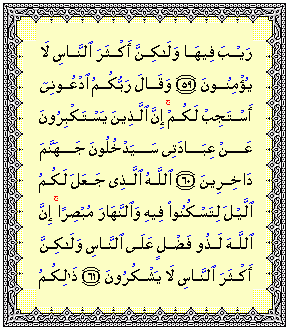 رَيۡبَ فِيهَا وَلَٰكِنَّ أَكۡثَرَ ٱلنَّاسِ لَا
يُؤۡمِنُونَ ۝٥٩ وَقَالَ رَبُّكُمُ ٱدۡعُونِيٓ
أَسۡتَجِبۡ لَكُمۡۚ إِنَّ ٱلَّذِينَ يَسۡتَكۡبِرُونَ
عَنۡ عِبَادَتِي سَيَدۡخُلُونَ جَهَنَّمَ
دَاخِرِينَ ۝٦٠ ٱللَّهُ ٱلَّذِي جَعَلَ لَكُمُ
ٱلَّيۡلَ لِتَسۡكُنُواْ فِيهِ وَٱلنَّهَارَ مُبۡصِرًاۚ إِنَّ
ٱللَّهَ لَذُو فَضۡلٍ عَلَى ٱلنَّاسِ وَلَٰكِنَّ
أَكۡثَرَ ٱلنَّاسِ لَا يَشۡكُرُونَ ۝٦١ ذَٰلِكُمُ